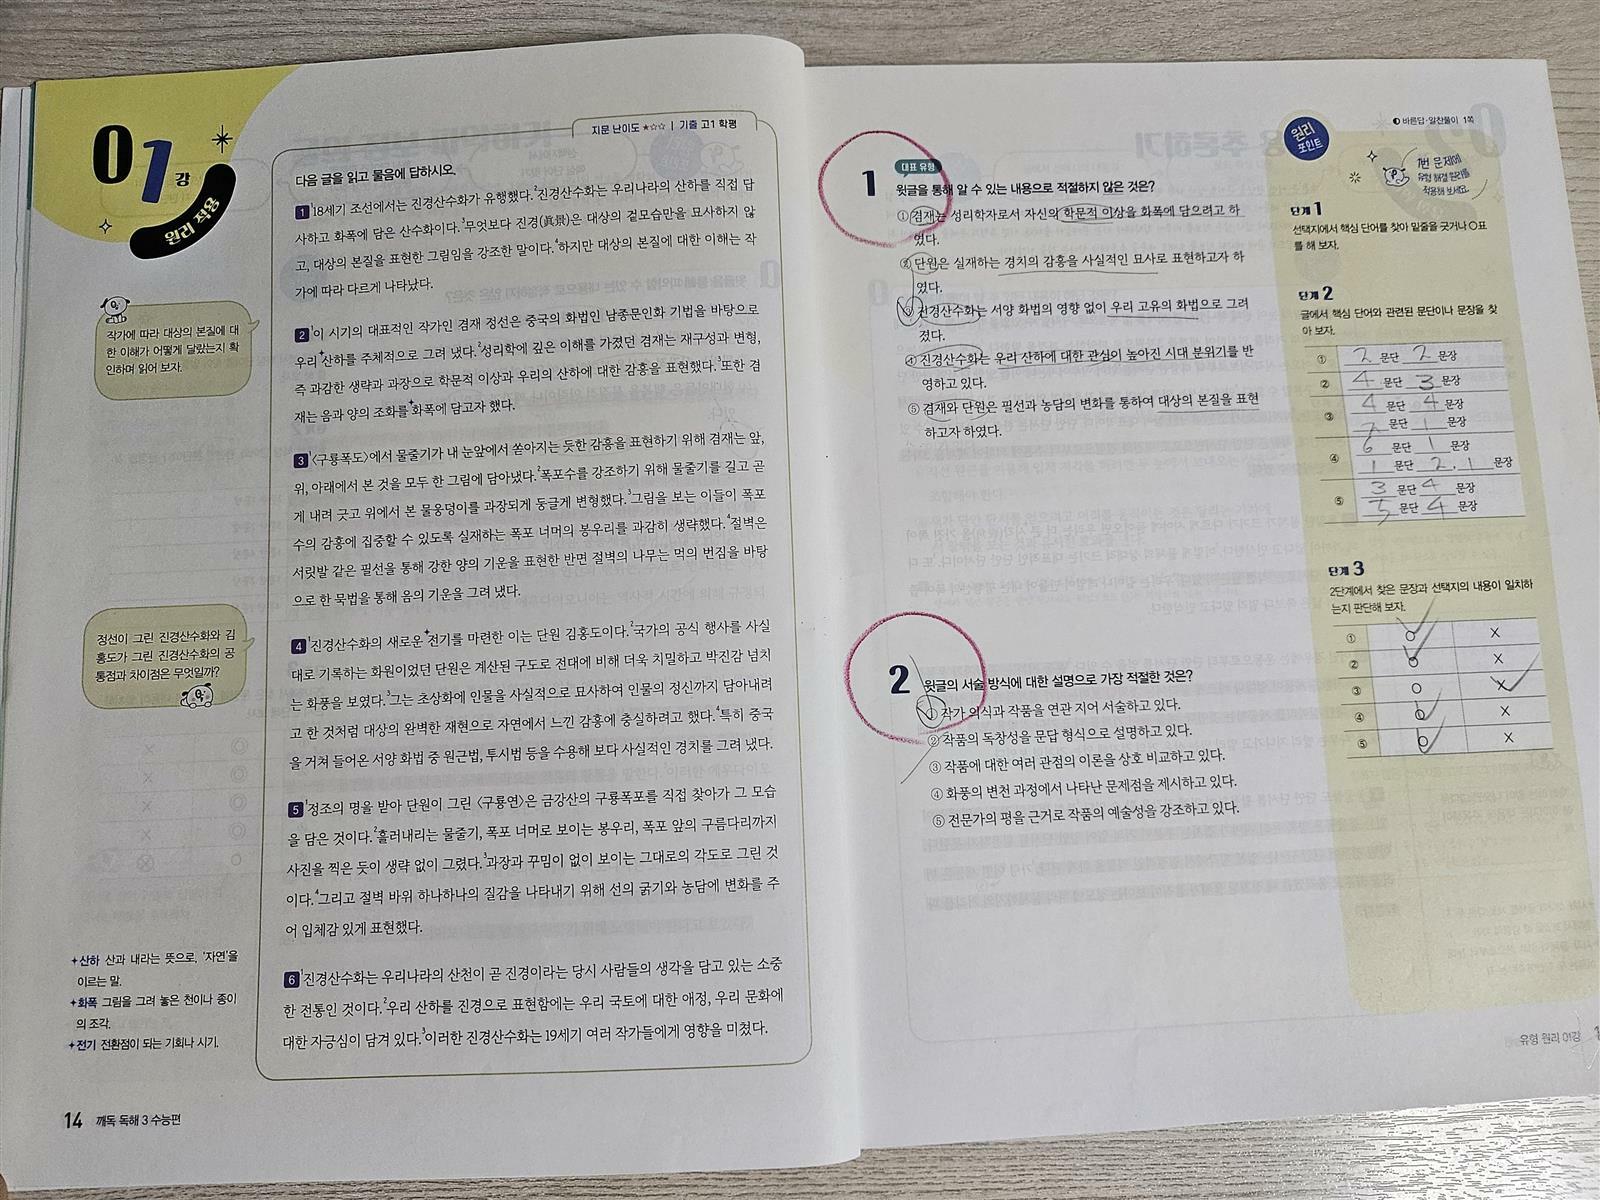 01강
원리 적용
지문 난이도 ★☆☆ | 기출 고1 학평
다음 글을 읽고 물음에 답하시오.
1 ¹18세기 조선에서는 진경산수화가 유행했다. ²진경산수화는 우리나라의 산하를 직접 답
사하고 화폭에 담은 산수화이다. ³무엇보다 진경(眞景)은 대상의 겉모습만을 묘사하지 않
고, 대상의 본질을 표현한 그림임을 강조한 말이다. ⁴하지만 대상의 본질에 대한 이해는 작
가에 따라 다르게 나타났다.
작가에 따라 대상의 본질에 대
한 이해가 어떻게 달랐는지 확
인하며 읽어 보자.
2 ¹이 시기의 대표적인 작가인 겸재 정선은 중국의 화법인 남종문인화 기법을 바탕으로
우리 산하를 주체적으로 그려 냈다. ²성리학에 깊은 이해를 가졌던 겸재는 재구성과 변형,
즉 과감한 생략과 과장으로 학문적 이상과 우리의 산하에 대한 감흥을 표현했다. ³또한 겸
재는 음과 양의 조화를 화폭에 담고자 했다.
3 ¹〈구룡폭도〉에서 물줄기가 내 눈앞에서 쏟아지는 듯한 감흥을 표현하기 위해 겸재는 앞,
위, 아래에서 본 것을 모두 한 그림에 담아냈다. ²폭포수를 강조하기 위해 물줄기를 길고 곧
게 내려 긋고 위에서 본 물웅덩이를 과장되게 둥글게 변형했다. ³그림을 보는 이들이 폭포
수의 감흥에 집중할 수 있도록 실재하는 폭포 너머의 봉우리를 과감히 생략했다. ⁴절벽은
서릿발 같은 필선을 통해 강한 양의 기운을 표현한 반면 절벽의 나무는 먹의 번짐을 바탕
으로 한 묵법을 통해 음의 기운을 그려 냈다.
정선이 그린 진경산수화와 김
홍도가 그린 진경산수화의 공
통점과 차이점은 무엇일까?
4 ¹진경산수화의 새로운 전기를 마련한 이는 단원 김홍도이다. ²국가의 공식 행사를 사실
대로 기록하는 화원이었던 단원은 계산된 구도로 전대에 비해 더욱 치밀하고 박진감 넘치
는 화풍을 보였다. ³그는 초상화에 인물을 사실적으로 묘사하여 인물의 정신까지 담아내려
고 한 것처럼 대상의 완벽한 재현으로 자연에서 느낀 감흥에 충실하려고 했다. ⁴특히 중국
을 거쳐 들어온 서양 화법 중 원근법, 투시법 등을 수용해 보다 사실적인 경치를 그려 냈다.
5 ¹정조의 명을 받아 단원이 그린 〈구룡연〉은 금강산의 구룡폭포를 직접 찾아가 그 모습
을 담은 것이다. ²흘러내리는 물줄기, 폭포 너머로 보이는 봉우리, 폭포 앞의 구름다리까지
사진을 찍은 듯이 생략 없이 그렸다. ³과장과 꾸밈이 없이 보이는 그대로의 각도로 그린 것
이다. ⁴그리고 절벽 바위 하나하나의 질감을 나타내기 위해 선의 굵기와 농담에 변화를 주
어 입체감 있게 표현했다.
6 ¹진경산수화는 우리나라의 산천이 곧 진경이라는 당시 사람들의 생각을 담고 있는 소중
한 전통인 것이다. ²우리 산하를 진경으로 표현함에는 우리 국토에 대한 애정, 우리 문화에
대한 자긍심이 담겨 있다. ³이러한 진경산수화는 19세기 여러 작가들에게 영향을 미쳤다.
✦산하 산과 내라는 뜻으로, '자연'을
이르는 말.
✦화폭 그림을 그려 놓은 천이나 종이
의 조각.
✦전기 전환점이 되는 기회나 시기.
14 깨독 독해 3 수능편
1 대표 유형
윗글을 통해 알 수 있는 내용으로 적절하지 않은 것은?
① 겸재는 성리학자로서 자신의 학문적 이상을 화폭에 담으려고 하
였다.
② 단원은 실재하는 경치의 감흥을 사실적인 묘사로 표현하고자 하
였다.
③ 진경산수화는 서양 화법의 영향 없이 우리 고유의 화법으로 그려
졌다.
④ 진경산수화는 우리 산하에 대한 관심이 높아진 시대 분위기를 반
영하고 있다.
⑤ 겸재와 단원은 필선과 농담의 변화를 통하여 대상의 본질을 표현
하고자 하였다.
2 윗글의 서술 방식에 대한 설명으로 가장 적절한 것은?
① 작가 의식과 작품을 연관 지어 서술하고 있다.
② 작품의 독창성을 문답 형식으로 설명하고 있다.
③ 작품에 대한 여러 관점의 이론을 상호 비교하고 있다.
④ 화풍의 변천 과정에서 나타난 문제점을 제시하고 있다.
⑤ 전문가의 평을 근거로 작품의 예술성을 강조하고 있다.
바른답·알찬풀이 1쪽
원리
포인트
1번 문제에
유형 해결 원리를
적용해 보세요.
단계 1
선택지에서 핵심 단어를 찾아 밑줄을 긋거나 ○표
를 해 보자.
단계 2
글에서 핵심 단어와 관련된 문단이나 문장을 찾
아 보자.
① 2 문단 2 문장
② 4 문단 3 문장
③ 4 문단 4 문장
문단 1 문장
④ 6 문단 1 문장
1 문단 2, 1 문장
⑤ 3 문단 4 문장
5 문단 4 문장
단계 3
2단계에서 찾은 문장과 선택지의 내용이 일치하
는지 판단해 보자.
① ○ X
② ○ X
③ ○ X
④ ○ X
⑤ ○ X
유형 원리 01강